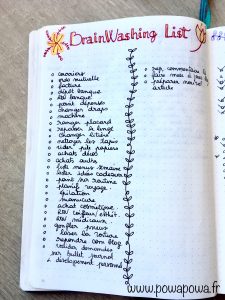 BrainWashing List
courriers
rdv mutuelle
facture
dépôt banque
RDV banque
point dépenses
changer draps
machine
ranger placard
repasser le linge
changer litière
nettoyer les tapis
vider pile papiers
achats déco
achats
liste menus semaine
lister idées cadeaux
point sur routine
planif voyage
épilation
manucure
achat cosmétique
RDV coiffeur/esthét.
RDV médicaux
gonfler pneus
laver la voiture
reprendre son blog
valider demandes
sur bullet journal
développement personnel
rep. commentaires
faire mise à jour
préparer
article
www.powapowa.fr